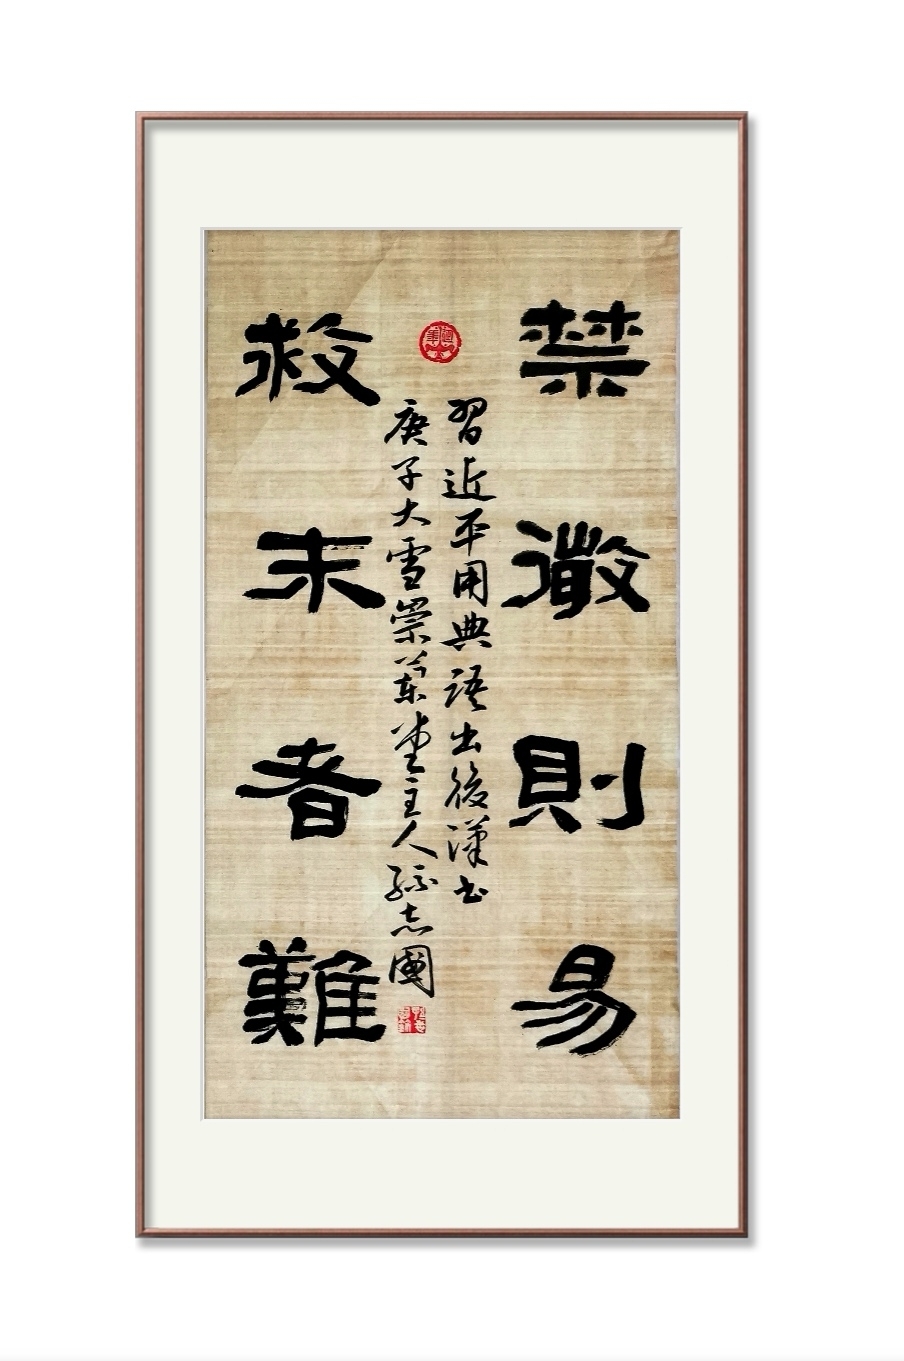 禁微則易
救末者難
習近平用典語出後漢书
庚子大雪崇蘭堂主人孫志國